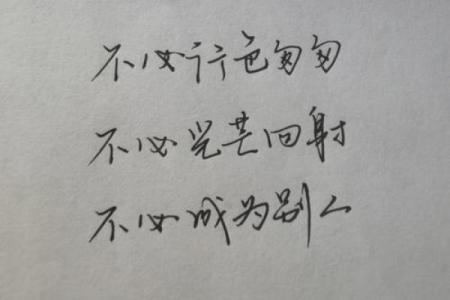 不必行色匆匆
不必光芒四射
不必成为别人